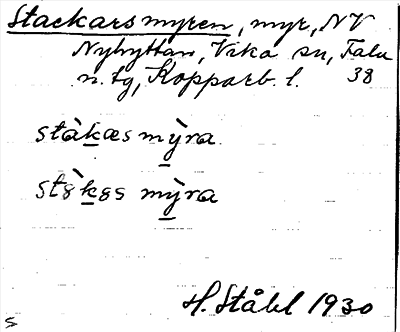 Stackarsmyren, myr, NV
Nyhyttan, Vika sn, Falu
n. tg, Kopparb. l. 38
stàkæs mỳra
stàkas mỳra
H. Ståhl 1930
s